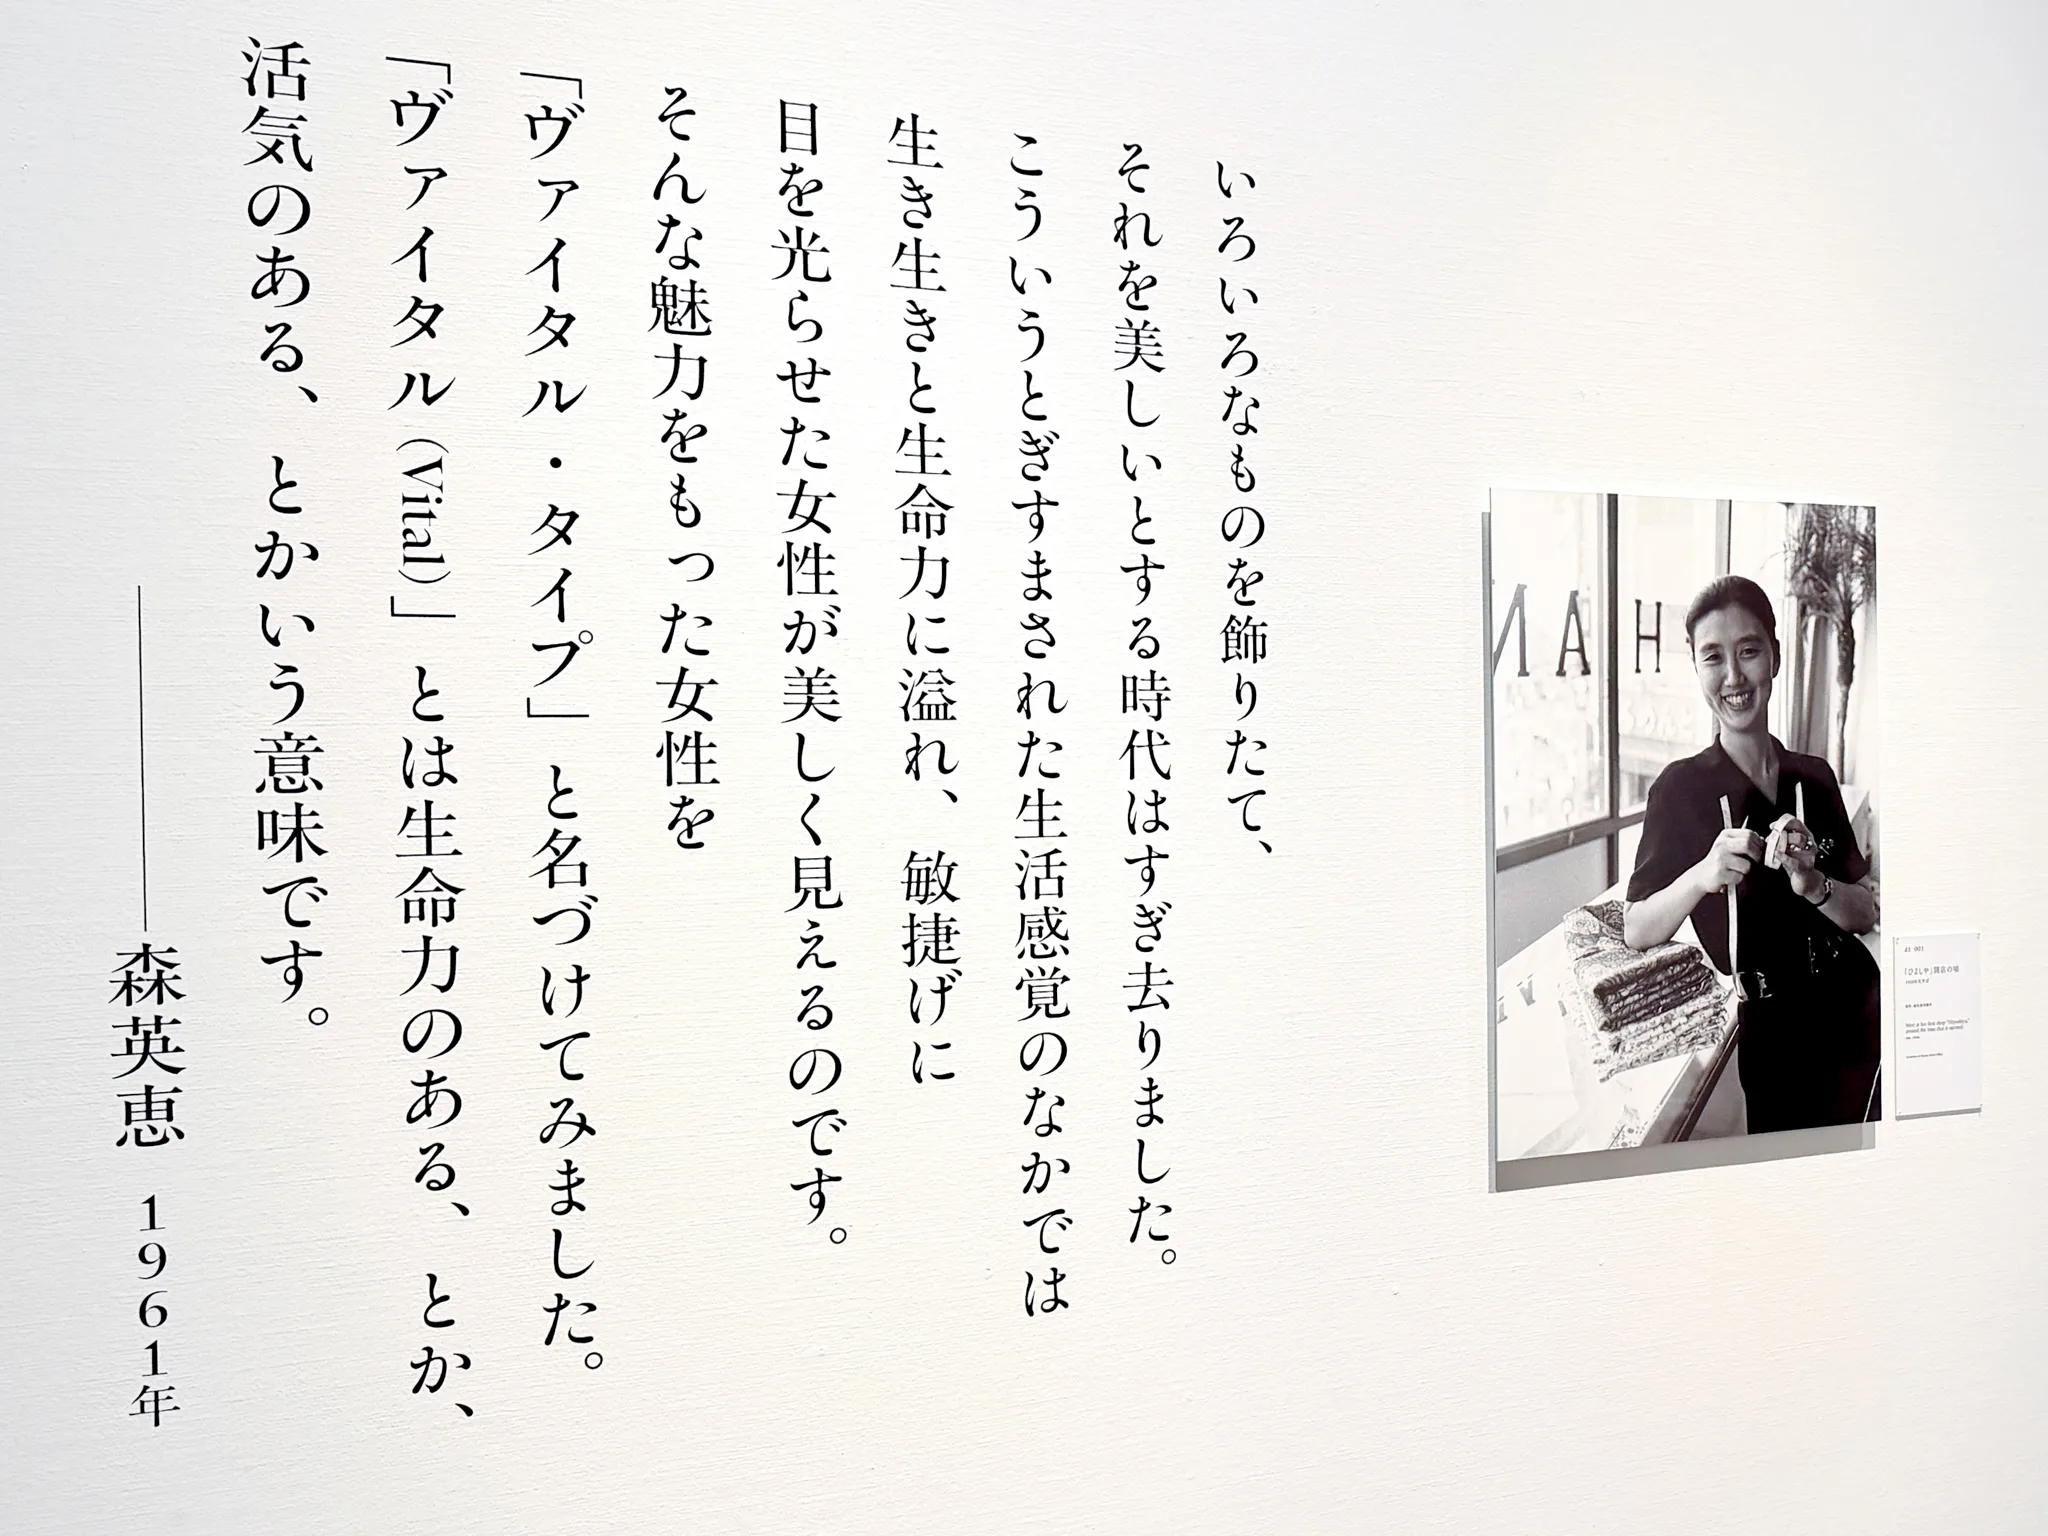 いろいろなものを飾りたて、
それを美しいとする時代はすぎ去りました。
こういうとぎすまされた生活感覚のなかでは
生き生きと生命力に溢れ、敏捷げに
目を光らせた女性が美しく見えるのです。
そんな魅力をもった女性を
「ヴァイタル・タイプ」と名づけてみました。
「ヴァイタル(Vital)」とは生命力のある、とか、
活気のある、とかいう意味です。
――森英恵 1961年
HAN
「ひよしや」開店の頃